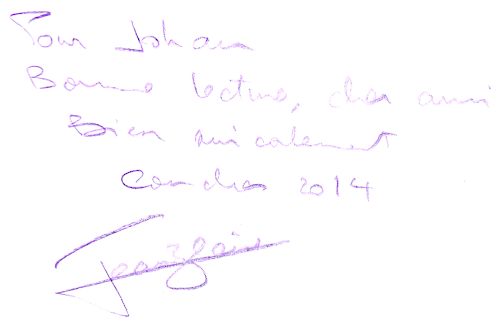 Pour Johan
Bonne lecture, cher ami
Bien amicalement
2014